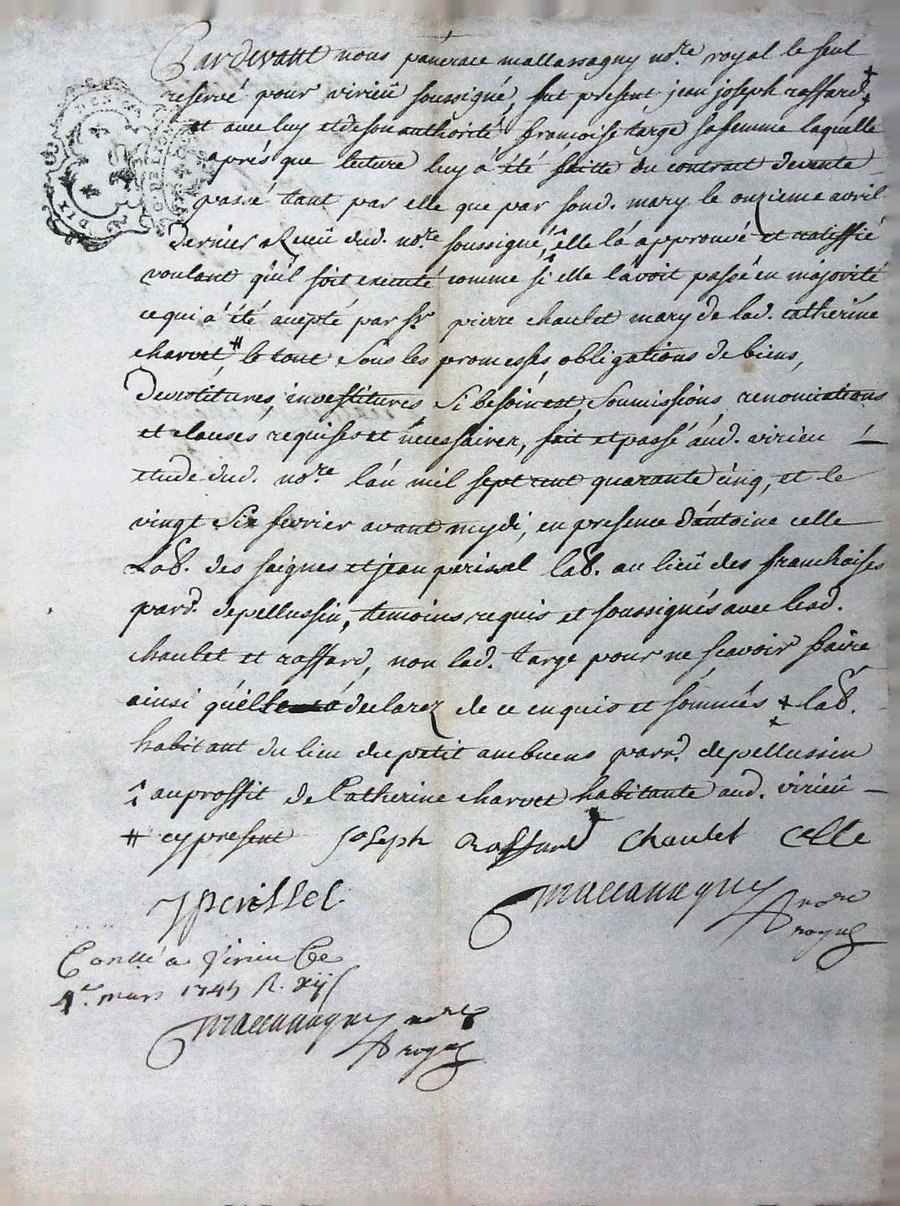 Pardevant nous pancrace mallassagny no.re royal le seul
reservé pour virieu soussigné, fut present jean joseph raffard ‡
et avec luy et de son authorité françoise targe sa femme laquelle
aprés que lecture luy à été faitte du contrat de vente
passé tant par elle que par sond. mary le onzieme avril
dernier a Recüü dud. no.re soussigné, ^ elle la approuvé et ratiffié
voulant qu'il soit executé comme si elle l'avoit passé en majorité
ce qui à été accepté par Sr. pierre chaulet mary de lad. catherine
charvet # le tout sous les promesses, obligations de biens,
devetitures, investitures si besoin est, soumissions, renonciations
et clauses requises et necessaires, fait et passé aud. virieu
etude dud. no.re l'an mil sept cent quarante cinq, et le
vingt six fevrier avant mydi, en presence d'antoine celle
Lab. des saignes et jean perissel lab. au lieü des franchises
parr. de pellussin, temoins requis et soussignés avec lesd.
chaulet et raffard, non lad. targe pour ne scavoir faire
ainsi qu'elle à declarez de ce enquis et sommés ‡ lab.
habitant du lieu du petit ambuens parr. de pellussin
^ au proffit de Catherine charvet habitante aud. virieü
# cy present Joseph Raffard chaulet celle
J perissel
no.re
royal
Con.llé a Virieu Ce
4.e mars 1745 R. xij s
no.re
royal